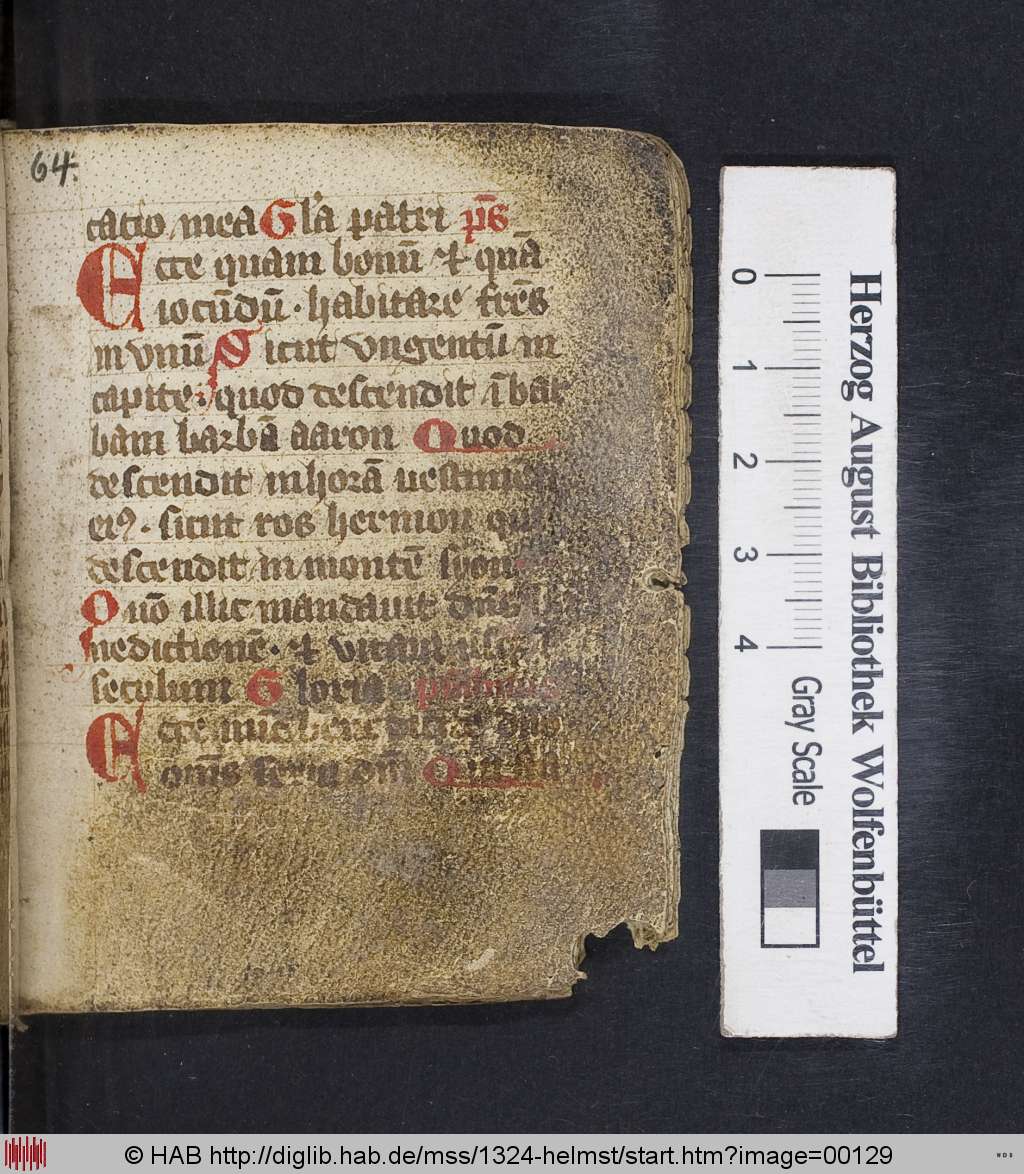 64.
catio mea Gl'a patri p̄s
Ecce quam bonū ⁊ quā
iocūdū · habitare fr̄es
in vnū Sicut vngentū in
capite · quod descendit ī bar
bam barbā aaron Quod
descendit in horā uestimēti
ei⁹ · sicut ros hermon qui
descendit in montē syon
Quō illic mandauit dn̄s
nedictionē · ⁊ vitam
seculum Gloria
Ecce
om̄s serui dn̄i Qui
0
1
2
3
4
Gray Scale
Herzog August Bibliothek Wolfenbüttel
© HAB http://diglib.hab.de/mss/1324-helmst/start.htm?image=00129